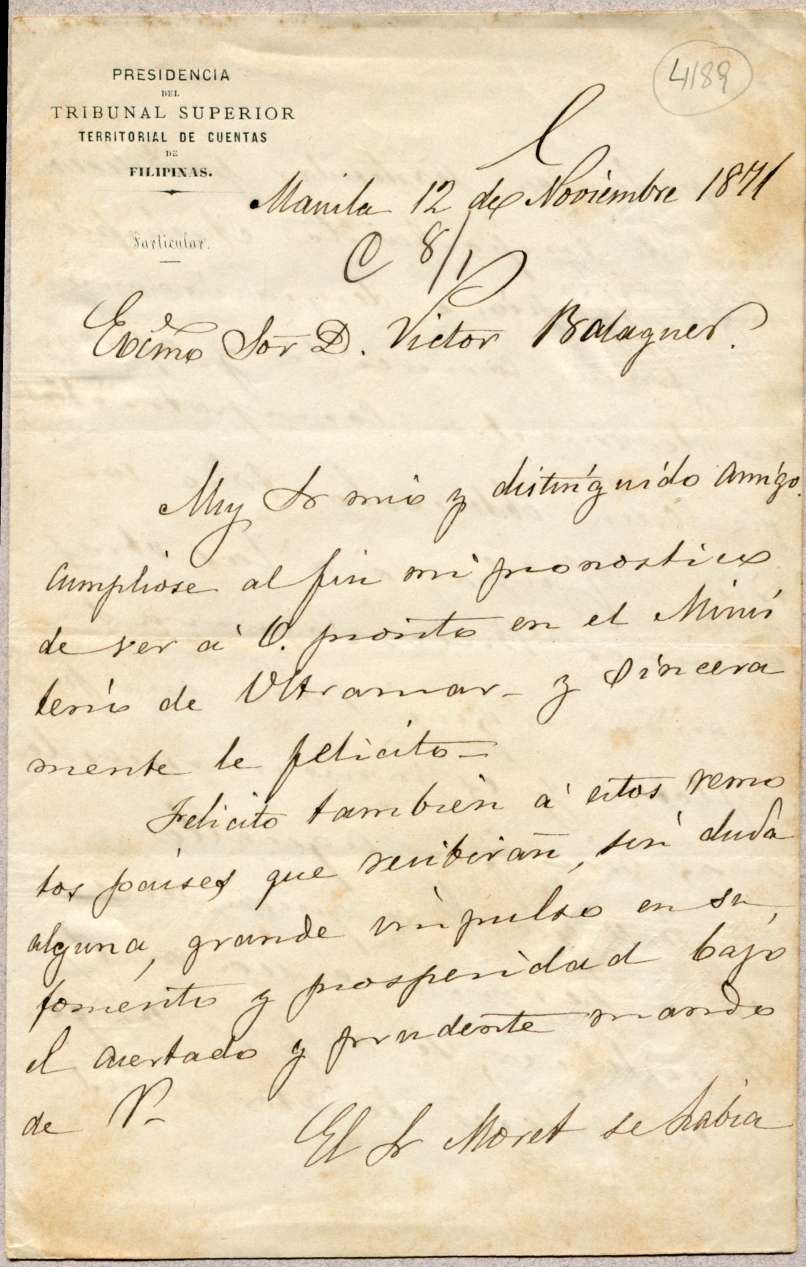 4189
PRESIDENCIA
DEL
TRIBUNAL SUPERIOR
TERRITORIAL DE CUENTAS
DE
FILIPINAS.
Manila 12 de Noviembre 1871
Particular.
C 8/1
Excmo Sor D. Victor Balaguer.
Muy Sr mio y distinguido amigo.
cumpliose al fin mi pronostico
de ver á V. pronto en el Minis
terio de Ultramar - y sincera
mente le felicito -
Felicito tambien á estos remo
tos paises que recibirán, sin duda
alguna, grande impulso en su
fomento y prosperidad bajo
el acertado y prudente mando
de V -
El Sr Moret se habia